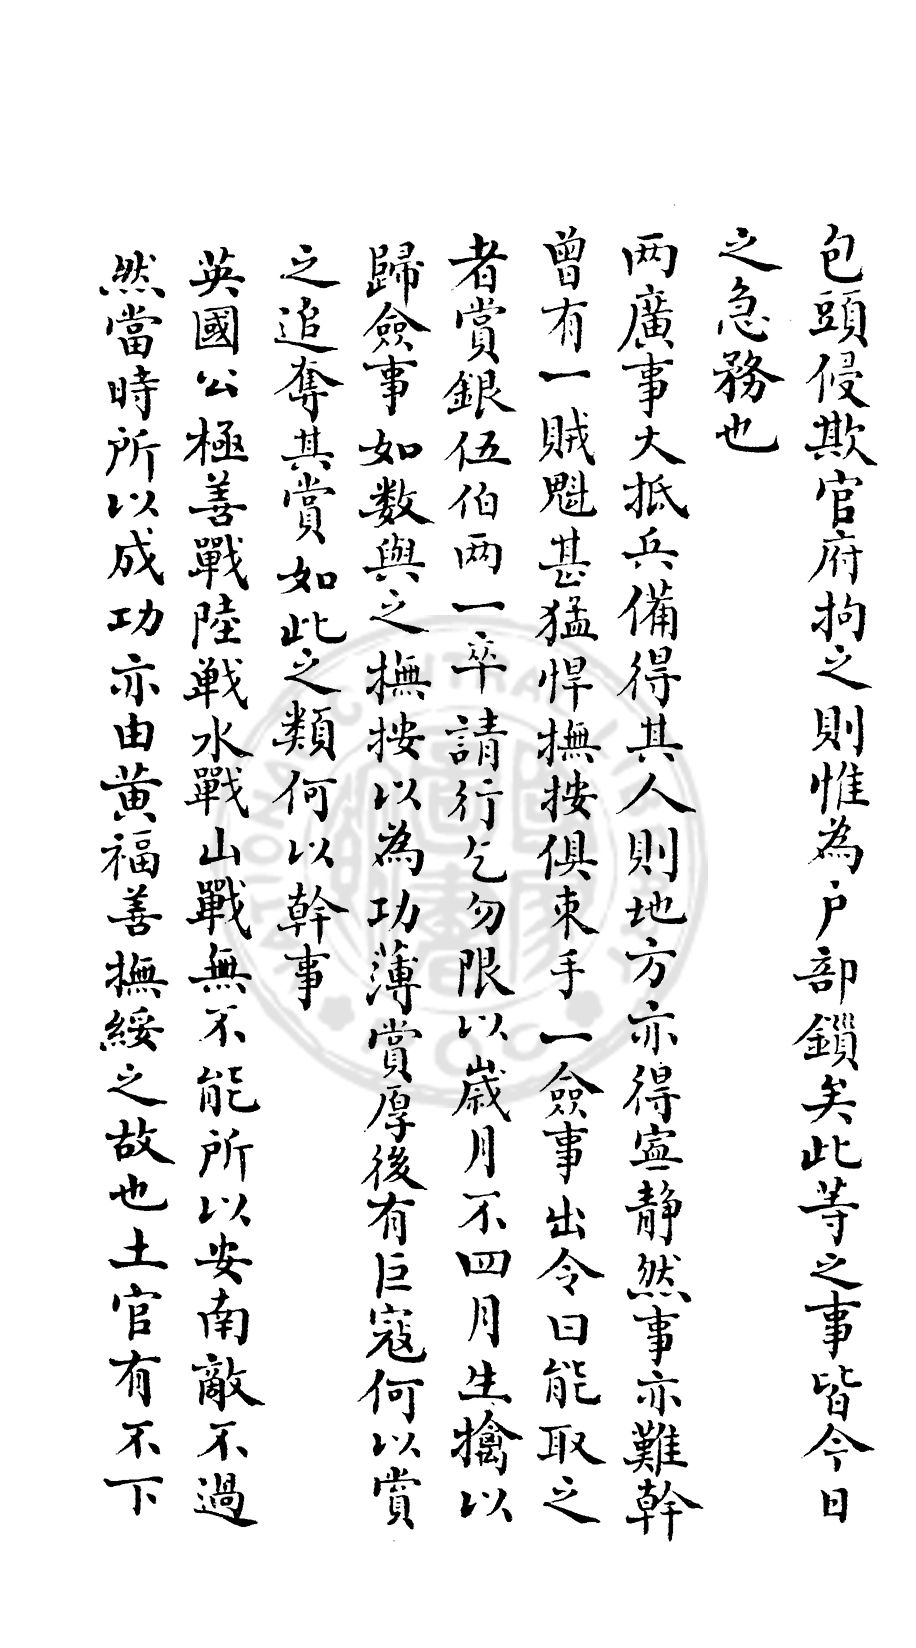 包頭侵欺官府拘之則惟為户部鎻矣此等之事皆今日
之急務也
两廣事大抵兵備得其人則地方亦得寍靜然事亦難幹
曾有一賊魁甚猛悍撫按俱束手一僉事出令曰能取之
者賞銀伍伯两一卒請行乞勿限以歳月不四月生擒以
歸僉事如数與之撫按以為功薄賞厚後有巨寇何以賞
之追奪其賞如此之類何以幹事
英國公極善戰陸戰水戰山戰無不能所以安南敵不過
然當時所以成功亦由黄福善撫綏之故也土官有不下